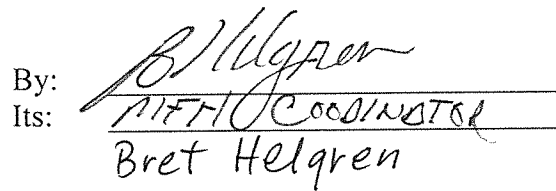 By: B Helgren
Its: MFM COODINATOR
Bret Helgren